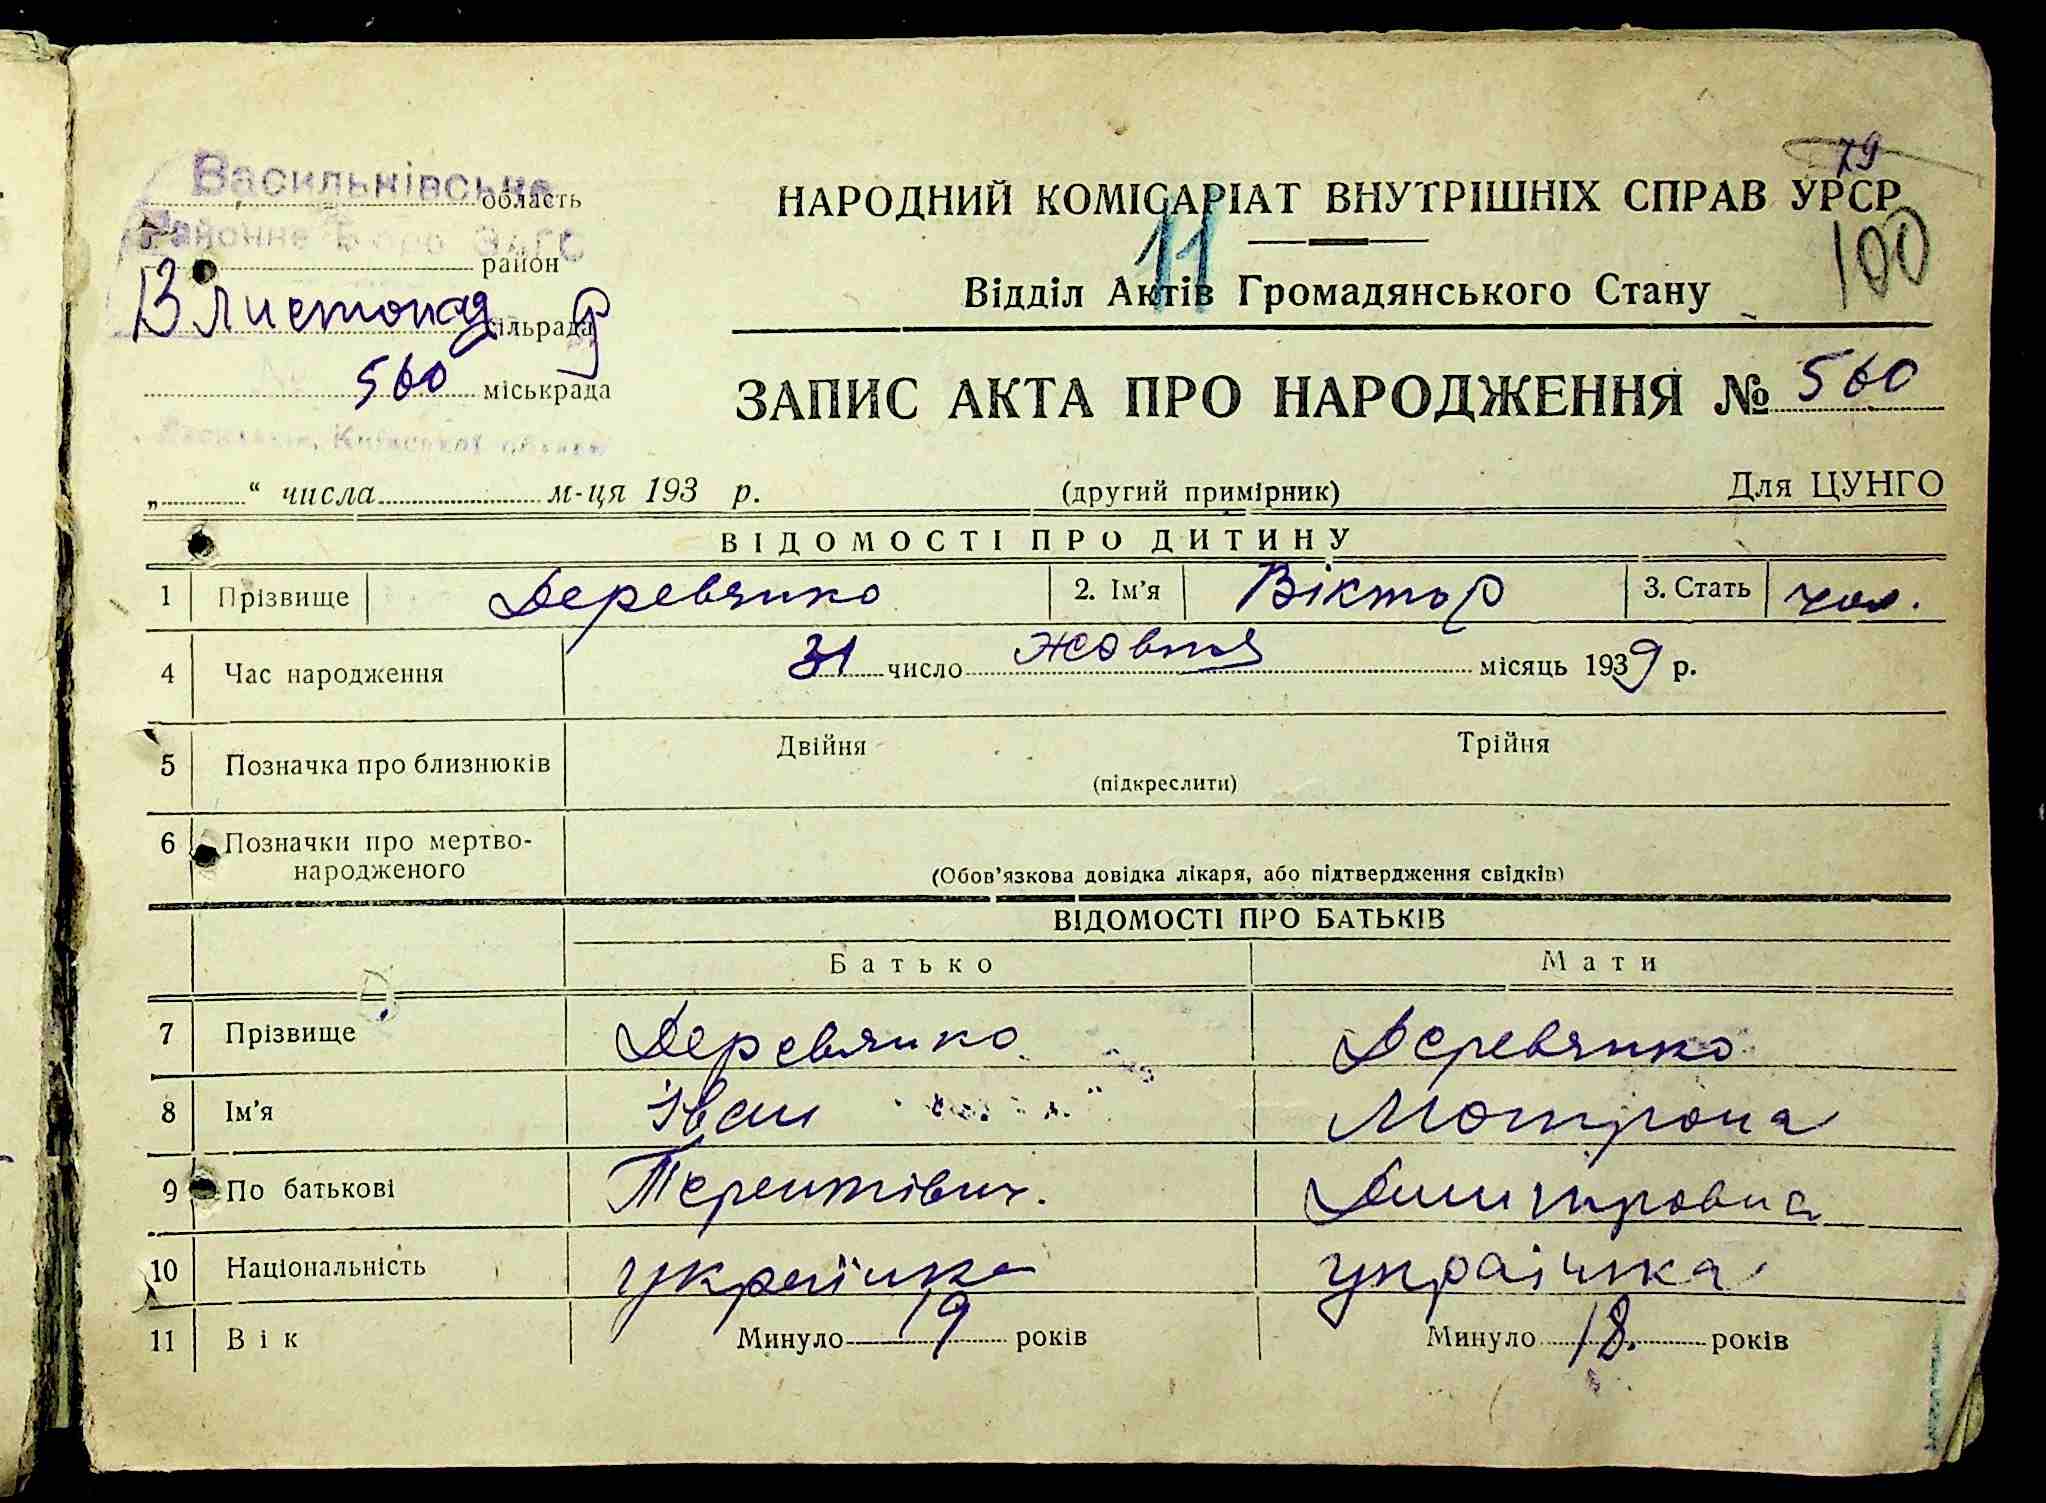 79
Васильківське область
Районне Бюро ЗАГС
район
13 Листопад сільрада
560 міськрада
Київської
НАРОДНИЙ КОМІСАРІАТ ВНУТРІШНІХ СПРАВ УРСР
11
100
Відділ Актів Громадянського Стану
ЗАПИС АКТА ПРО НАРОДЖЕННЯ № 560
„ “ числа м-ця 193 р. (другий примірник) Для ЦУНГО
ВІДОМОСТІ ПРО ДИТИНУ
1 Прізвище Деревянко 2. Ім'я Віктор 3. Стать чол.
4 Час народження 31 число жовтня місяць 1939 р.
5 Позначка про близнюків Двійня Трійня
(підкреслити)
6 Позначки про мертво-
народженого (Обов'язкова довідка лікаря, або підтвердження свідків)
ВІДОМОСТІ ПРО БАТЬКІВ
Батько Мати
7 Прізвище Деревянко Деревянко
8 Ім'я Іван Мотрона
9 По батькові Терентівич. Дмитровна
10 Національність українка українка
11 Вік Минуло 19 років Минуло 18. років